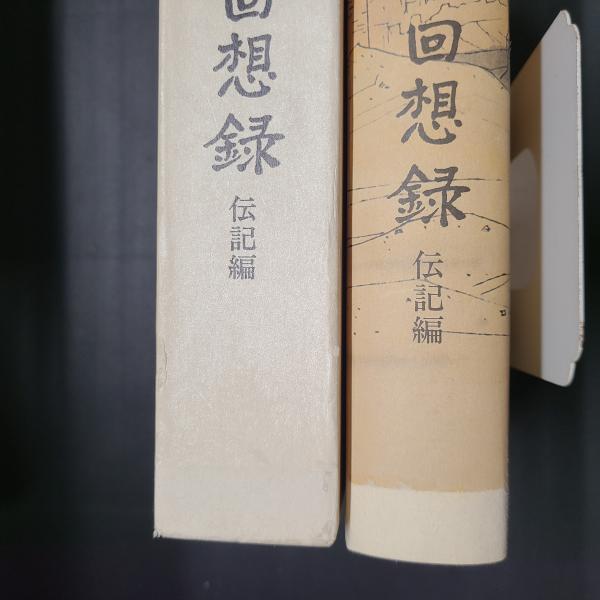 回想録
伝記編
回想録
伝記編